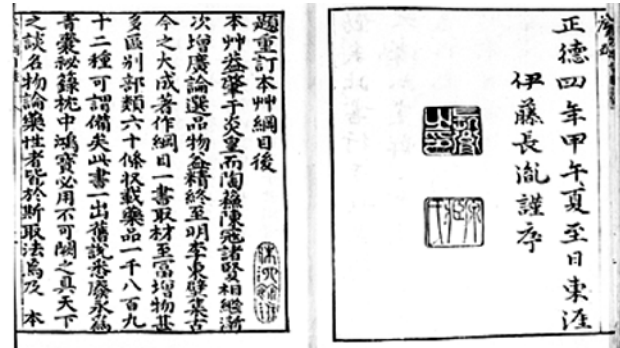 正德四年甲午夏至日東涯
伊藤長胤謹序
題重訂本艸綱目後
本艸益肇于炎皇而陶蘓陳冦諸賢相繼漸
次增廣論選品物益精終至明李東璧集古
今之大成著作綱目一書取材至富增物甚
多區別部類六十條収載藥品一千八百九
十二種可謂備矣此書一出舊説悉廢永為
青囊秘籙枕中鴻寶必用不可闕之真天下
之談名物論藥性者皆於斯取法焉及 本